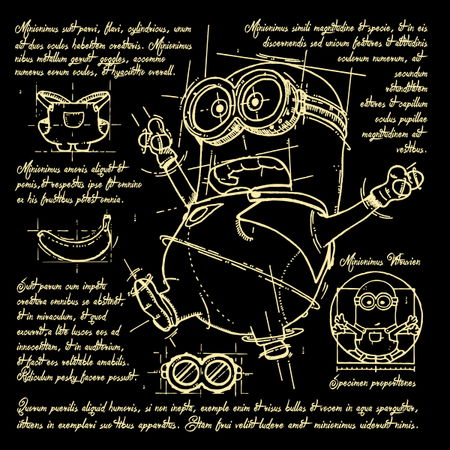 Minionimus sunt parvi, flavi, cylindrici, unum
aut duos oculos habentem creatoris. Minionimus
nibus metallum gerunt goggles, accommo
numerus eorum oculos, et hyacintho overall.
Minionimus simili magnitudine et specie, et in eis
discernendis sed unicum features et altitudinis
oculorum numerum, aut
secundum
retundatam
estates et capillum
oculus pupillae
magnitudinem aut
vestibus.
Minionimus amoris aliquet et
pomis, et respectus ipse fit omnino
ex his frustibus potest omnia.
Sunt parum cum impetu
creatore omnibus abstinet,
et in miraculum, et quod
excurrit, a late intus ad
innocentiam, et in auditorium,
et facit eos relatable amabilis.
Ridiculum pesky facere possunt.
Minionimus Vitruvien
Specimen propotiones
Quorum puerilis aliquid humoris, si non inepta, exemplo enim et risus bullas et vocem in aqua sparguntur,
intuens in exemplari suo tibus apparatus. Etiam fruor velit ludere amet minionimus diuturnit nimis.